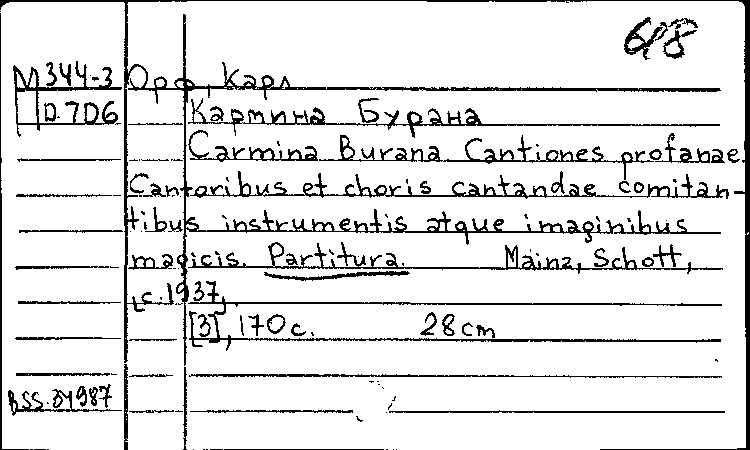 618
М 344-3 Орф, Карл
D.7D6 Кармина Бурана
Carmina Burana Cantiones profanae.
Cantoribus et choris cantandae comitan-
tibus instrumentis atque imaginibus
magicis. Partitura. Mainz, Schott,
[c.1937].
[3], 170 c. 28 cm
BSS.34987